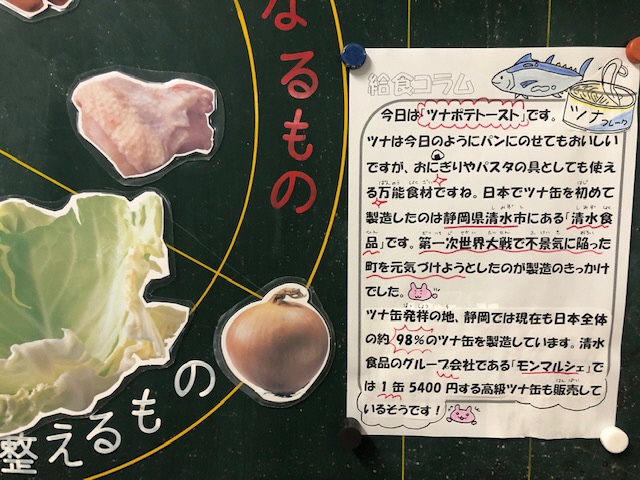 なるもの
整えるもの
給食コラム
ツナ
フレーク
今日は「ツナポテトースト」です。
ツナは今日のようにパンにのせてもおいしい
ですが、おにぎりやパスタの具としても使え
る万能食材ですね。日本でツナ缶を初めて
製造したのは静岡県清水市にある「清水食
品」です。第一次世界大戦で不景気に陥った
町を元気づけようとしたのが製造のきっかけ
でした。
ツナ缶発祥の地、静岡では現在も日本全体
の約98%のツナ缶を製造しています。清水
食品のグループ会社である「モンマルシェ」で
は1缶5400円する高級ツナ缶も販売して
いるそうです！